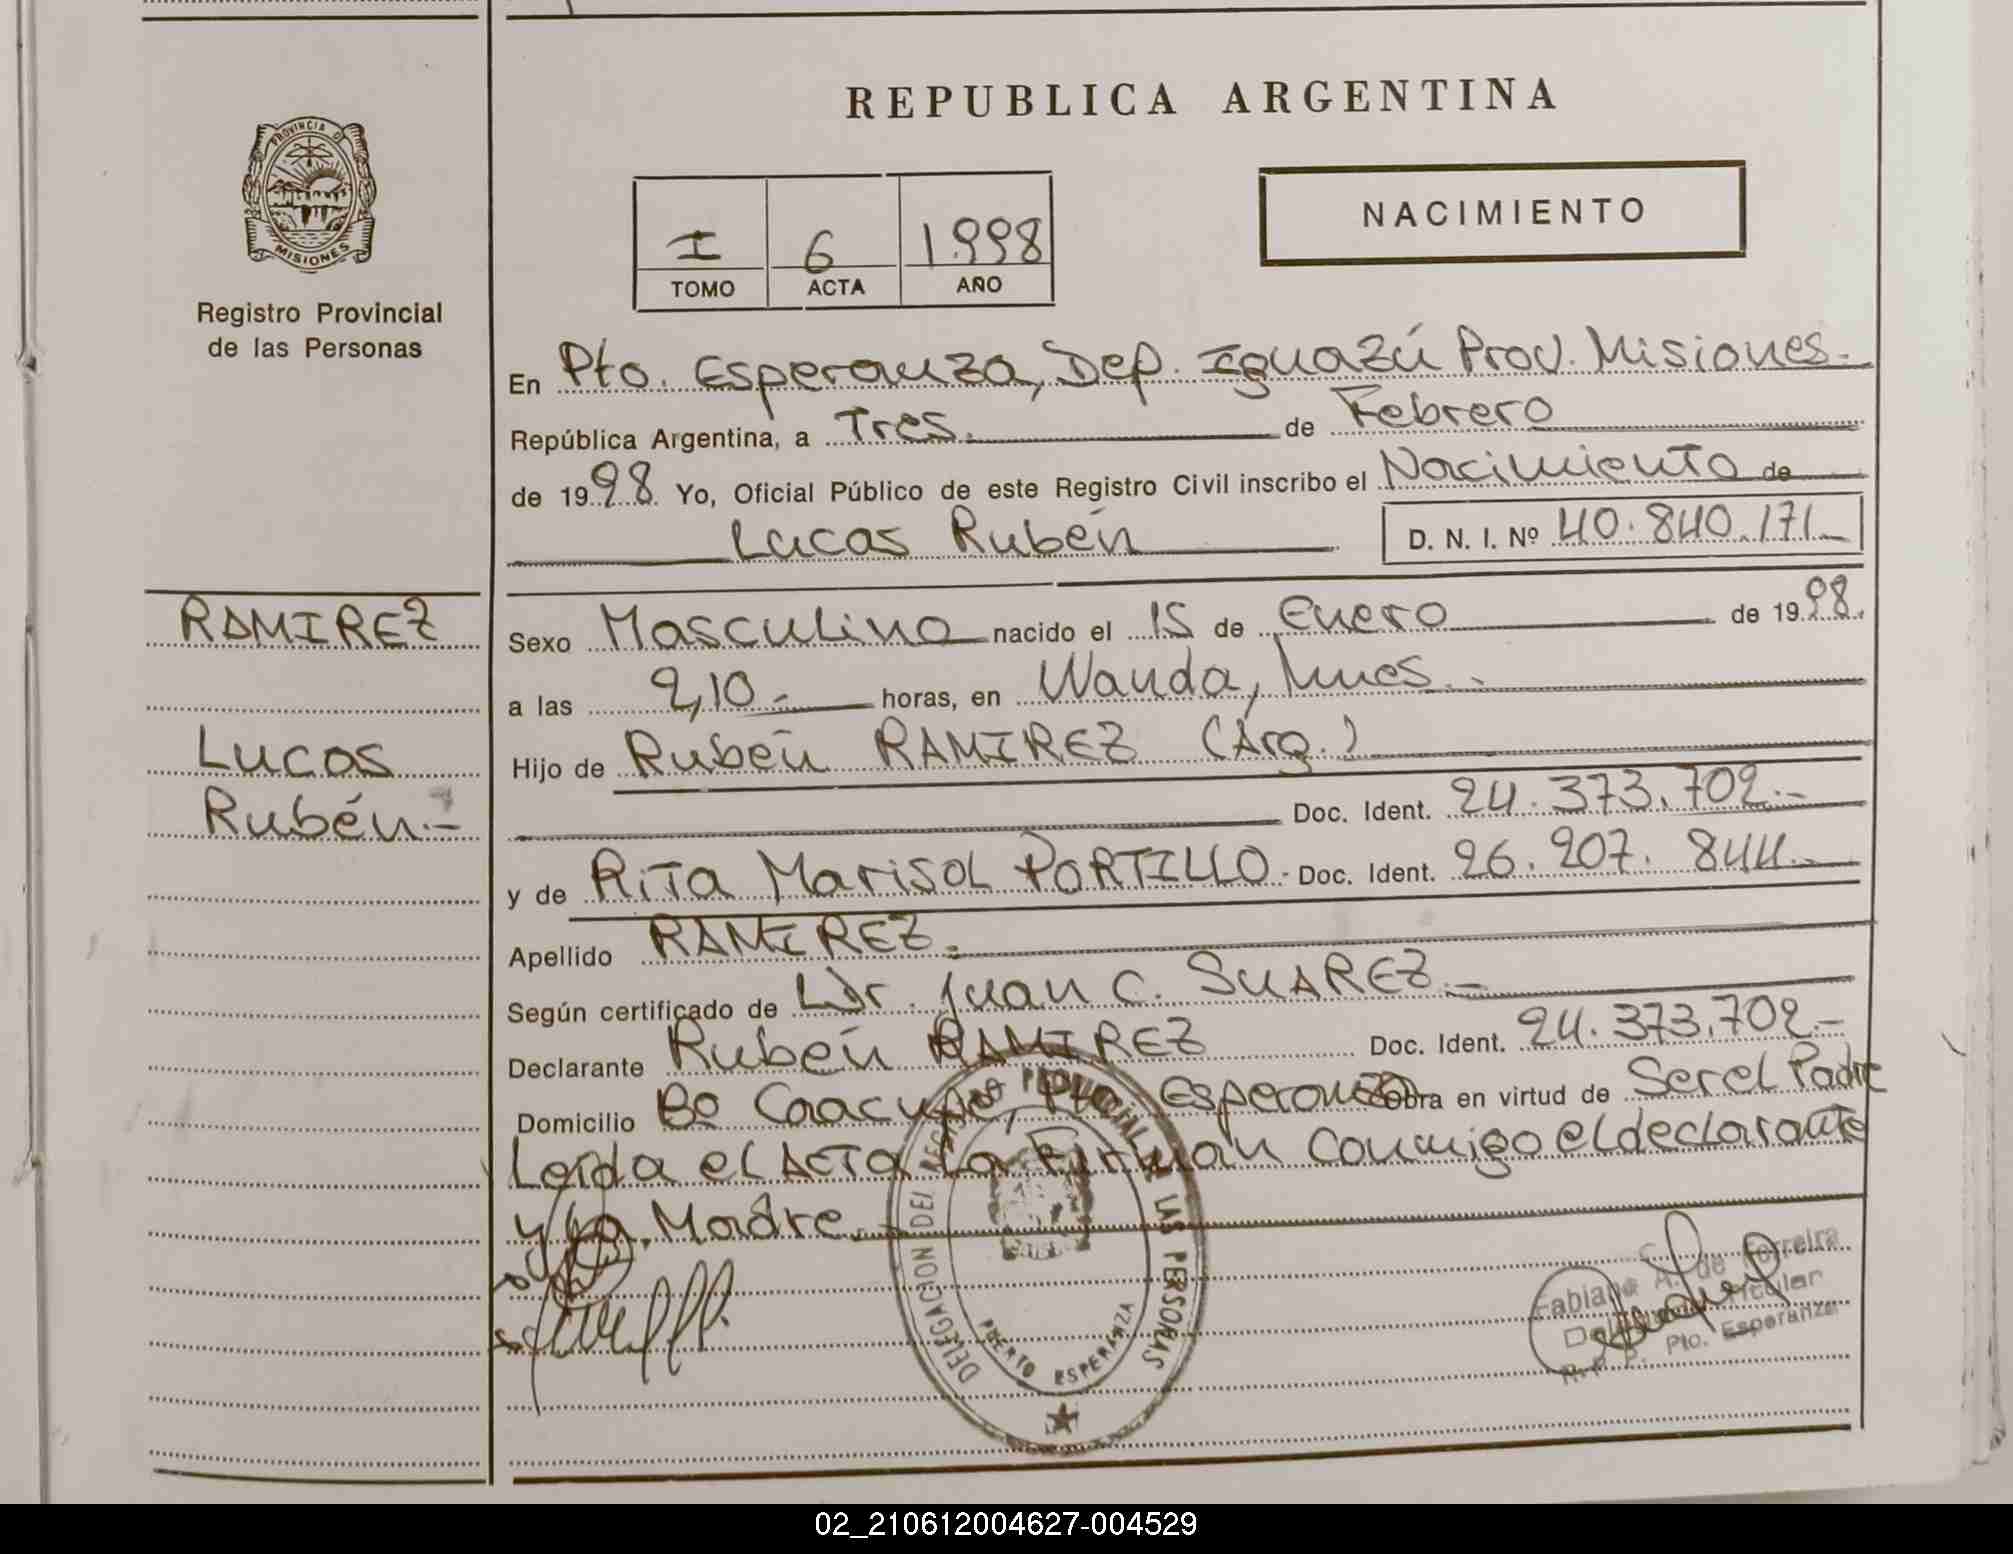 REPUBLICA ARGENTINA
PROVINCIA DE
MISIONES
Registro Provincial
de las Personas
I 6 1.998
TOMO ACTA AÑO
NACIMIENTO
En Pto. Esperanza, Dep. Iguazú Prov. Misiones.-
República Argentina, a Tres. de Febrero
de 1998. Yo, Oficial Público de este Registro Civil inscribo el Nacimiento de
Lucas Rubén D. N. I. Nº 40.840.171
RAMIREZ
Lucas
Rubén.-
Sexo Masculino nacido el 15 de Enero de 1998.
a las 2,10.- horas, en Wanda,
Hijo de Rubén RAMIREZ (Arg.)
Doc. Ident. 24.373.702.-
y de Rita Marisol PORTILLO.- Doc. Ident. 26.207.844.-
Apellido RAMIREZ.
Según certificado de Dr. Juan C. SUAREZ.-
Declarante Rubén RAMIREZ Doc. Ident. 24.373.702.-
Domicilio Bº Caacupé, Pto Esperanza Obra en virtud de Ser el Padre
Leída el ACTA la Firman Conmigo el declarante
y la Madre.
DELEGACION DEL REGISTRO PROVINCIAL DE LAS PERSONAS
PUERTO ESPERANZA
A. de Ferreira
R. P. P. Pto. Esperanza
02_210612004627-004529